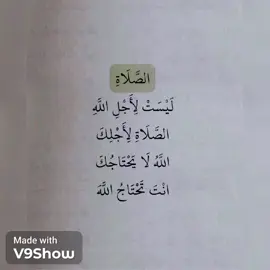 الصَّلَاةِ
لَيْسَتْ لِأَجْلِ اللَّهِ
الصَّلَاةِ لِأَجْلِكَ
اللَّهُ لَا يَحْتَاجُكَ
انْتَ تَحْتَاجُ اللَّهَ
Made with
V9Show